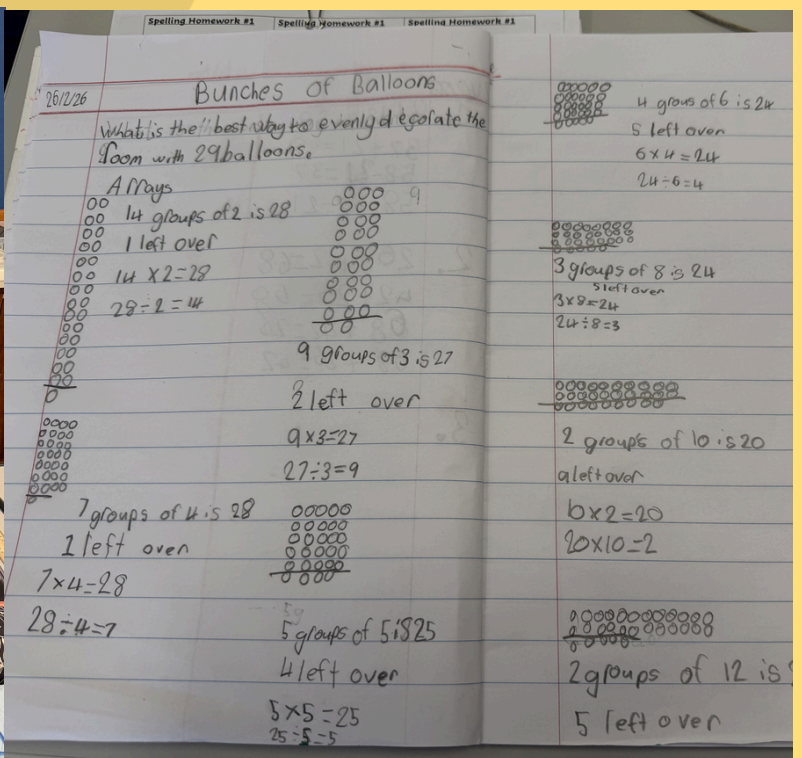 Spelling Homework #1
Spelling Homework #1
Spelling Homework #1
26/2/26
Bunches of Balloons
What is the best way to evenly decorate the
room with 29 balloons.
Arrays
14 groups of 2 is 28
1 left over
14 x 2 = 28
28 ÷ 2 = 14
9
9 groups of 3 is 27
2 left over
9 x 3 = 27
27 ÷ 3 = 9
7 groups of 4 is 28
1 left over
7 x 4 = 28
28 ÷ 4 = 7
5 groups of 5 is 25
4 left over
5 x 5 = 25
25 ÷ 5 = 5
4 grous of 6 is 24
5 left over
6 x 4 = 24
24 ÷ 6 = 4
3 groups of 8 is 24
5 left over
3 x 8 = 24
24 ÷ 8 = 3
2 groups of 10 is 20
9 left over
10 x 2 = 20
20 x 10 = 2
2 groups of 12 is
5 left over